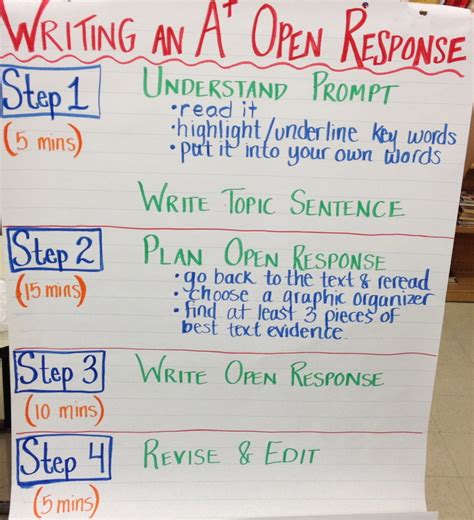 WRITING AN A+ OPEN RESPONSE
Step 1
(5 mins)
UNDERSTAND PROMPT
• read it
• highlight/underline key words
• put it into your own words
WRITE TOPIC SENTENCE
Step 2
(15 mins)
PLAN OPEN RESPONSE
• go back to the text & reread
• choose a graphic organizer
• find at least 3 pieces of
best text evidence.
Step 3
(10 mins)
WRITE OPEN RESPONSE
Step 4
(5 mins)
REVISE & EDIT